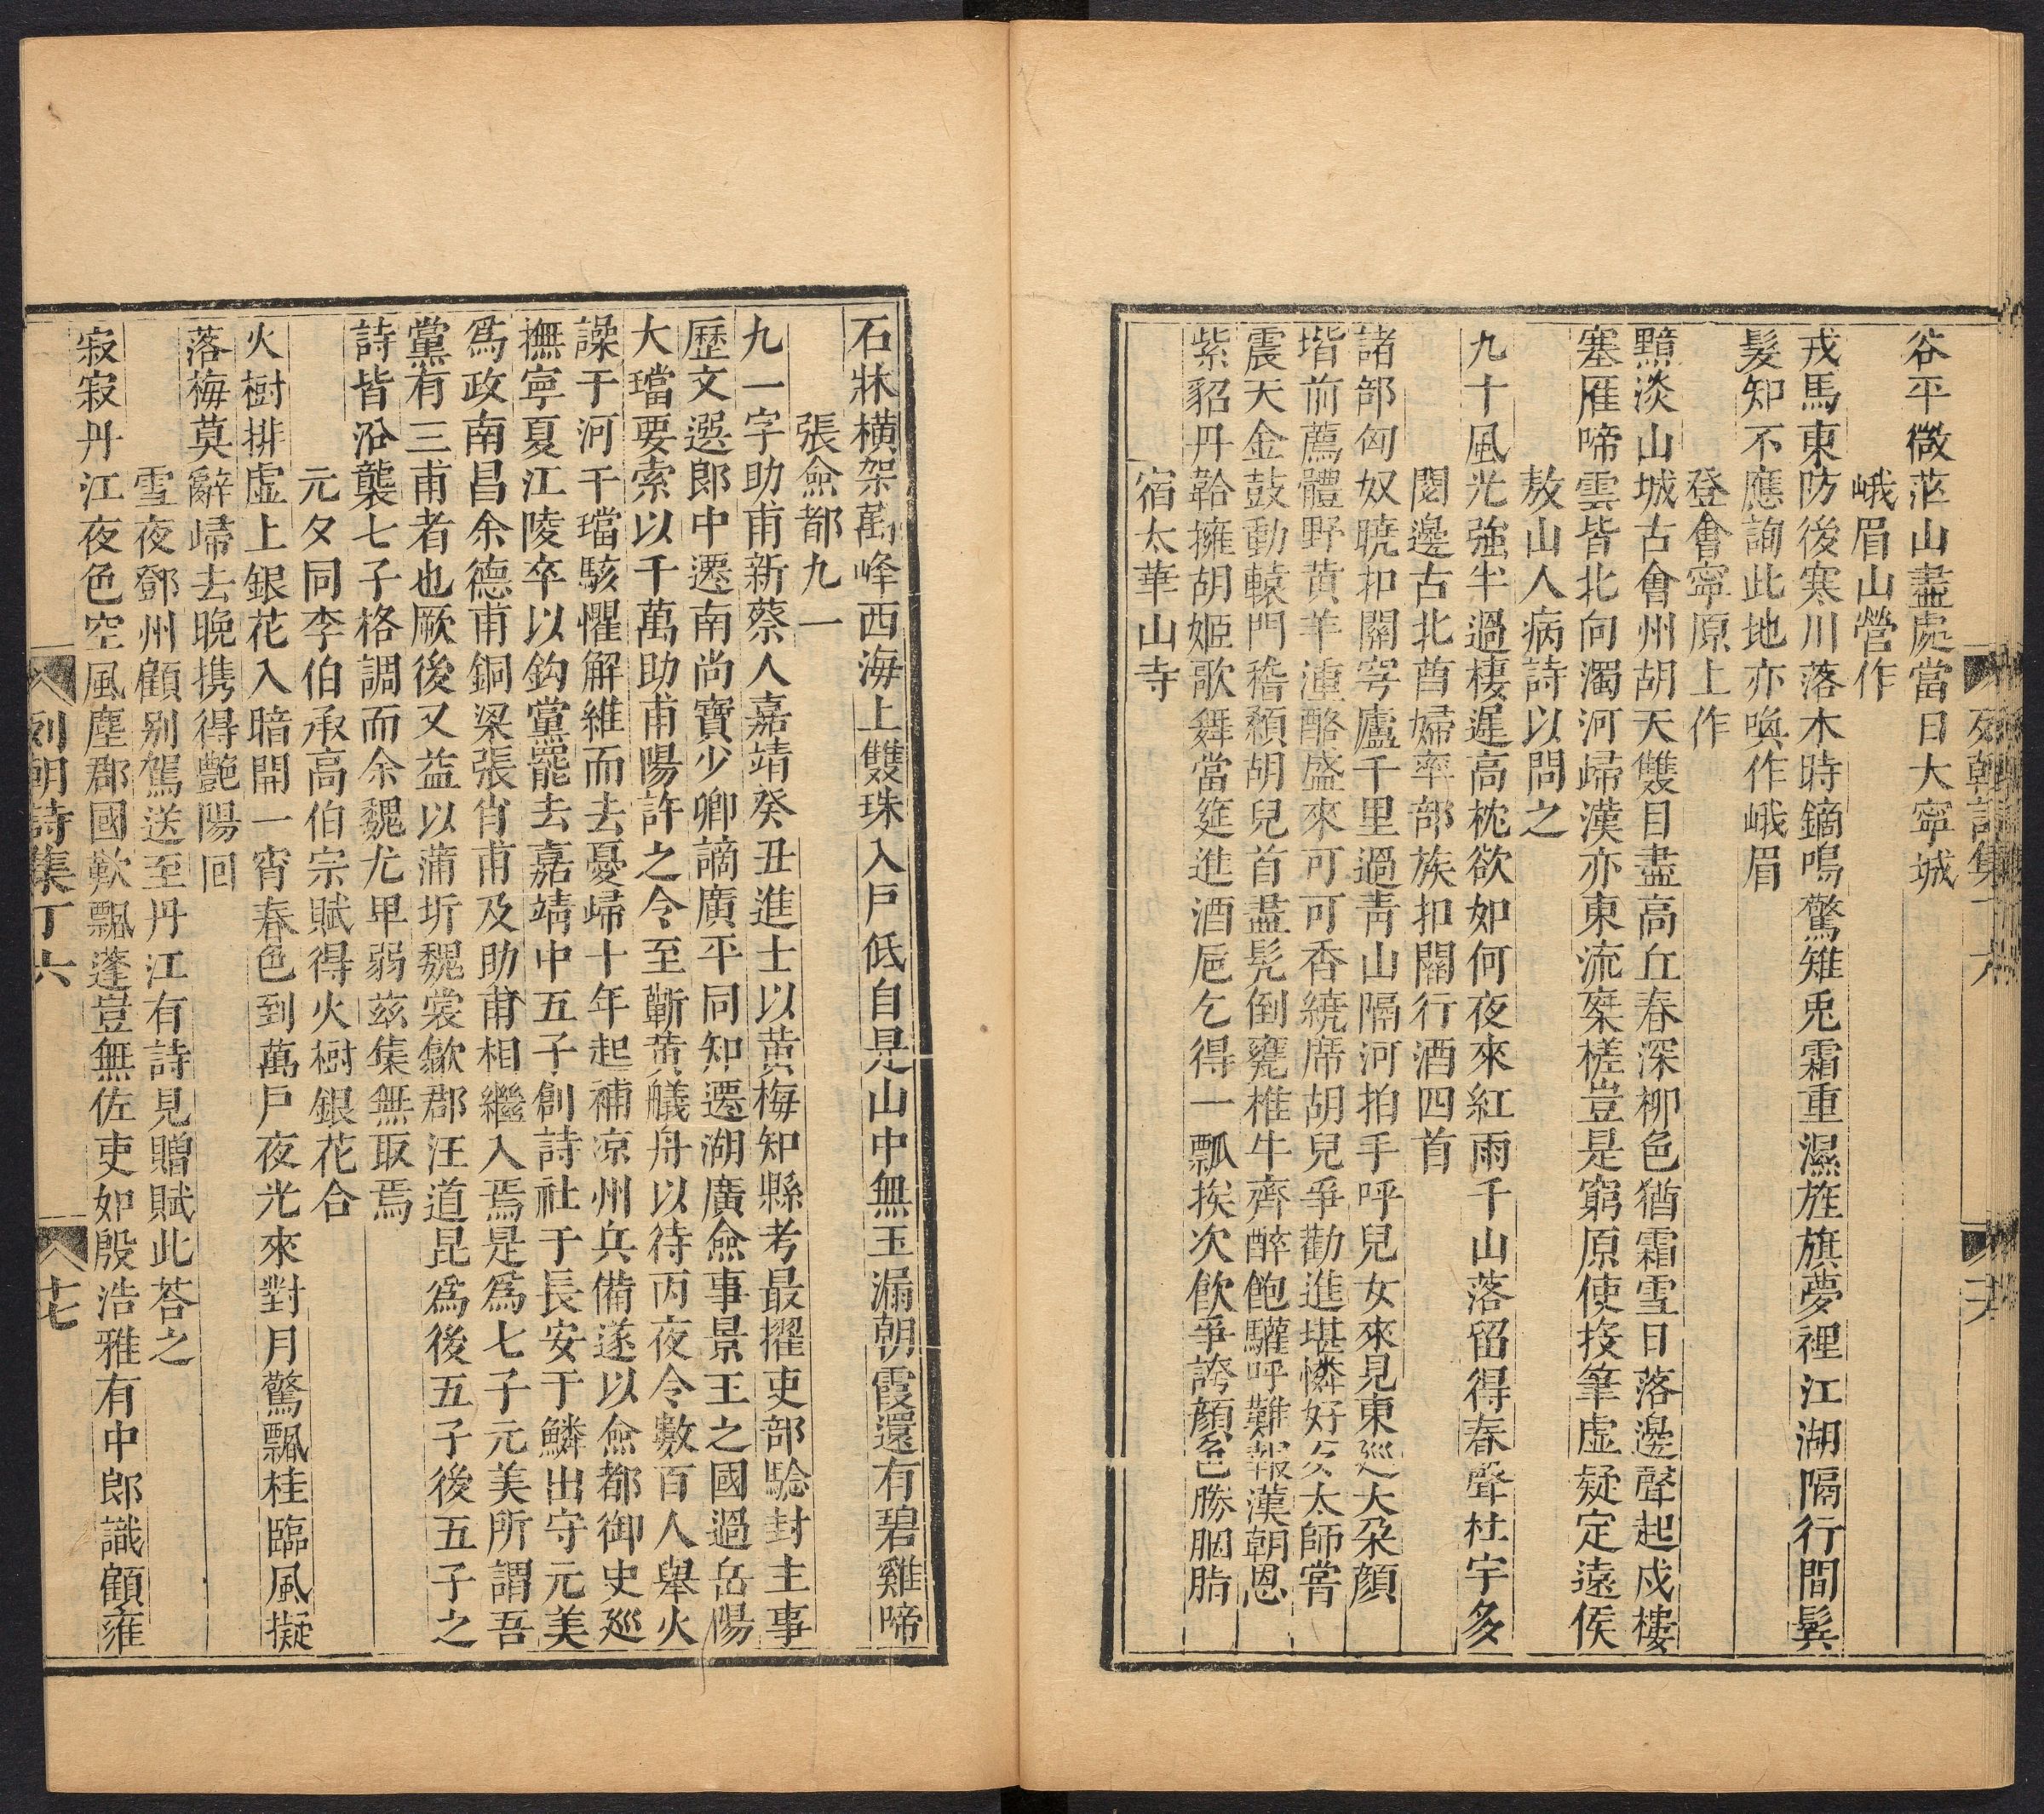 谷平微茫山盡處當日大寧城
峨眉山營作
戎馬東防後寒川落木時鏑鳴驚雉兎霜重濕旌旗夢裡江湖隔行間鬂
髮知不應詢此地亦喚作峨眉
登會寧原上作
黯淡山城古會州胡天雙目盡高丘春深柳色猶霜雪日落邊聲起戍樓
塞雁啼雲皆北向濁河歸漢亦東流乘槎豈是窮原使投筆虛疑定遠侯
敖山人病詩以問之
九十風光強半過棲遲高枕欲如何夜來紅雨千山落留得春聲杜宇多
閱邊古北酋婦率部族扣關行酒四首
諸部匈奴曉扣關穹廬千里過靑山隔河拍手呼兒女來見東巡大朶顏
堦前薦體野黃羊湩酪盛來可可香繞席胡兒爭勸進堪憐好
太師嘗
震天金鼓動轅門稽顙胡兒首盡髠倒甕椎牛齊醉飽驩呼難報漢朝恩
紫貂丹韐擁胡姬歌舞當筵進酒巵乞得一瓢挨次飲爭誇顏色勝胭脂
宿太華山寺
石牀橫架萬峰西海上雙珠入戶低自是山中無玉漏朝霞還有碧雞啼
張僉都九一
九一字助甫新蔡人嘉靖癸丑進士以黃梅知縣考最擢吏部驗封主事
歷文選郎中遷南尚寶少卿謫廣平同知遷湖廣僉事景王之國過岳陽
大璫要索以千萬助甫陽許之令至蘄黃艤舟以待丙夜令數百人舉火
譟于河干璫駭懼解維而去憂歸十年起補凉州兵備遂以僉都御史巡
撫寧夏江陵卒以鈎黨罷去嘉靖中五子創詩社于長安于鱗出守元美
爲政南昌余德甫銅梁張肖甫及助甫相繼入焉是爲七子元美所謂吾
黨有三甫者也厥後又益以蒲圻魏裳歙郡汪道昆爲後五子後五子之
詩皆沿襲七子格調而余魏尤卑弱茲集無取焉
元夕同李伯承高伯宗賦得火樹銀花合
火樹排虛上銀花入暗開一宵春色到萬戶夜光來對月驚飄桂臨風擬
落梅莫辭歸去晚携得艷陽回
雪夜鄧州顧别駕送至丹江有詩見贈賦此荅之
寂寂丹江夜色空風塵郡國歎飄蓬豈無佐吏如殷浩雅有中郎識顧雍
列朝詩集丁六
十七